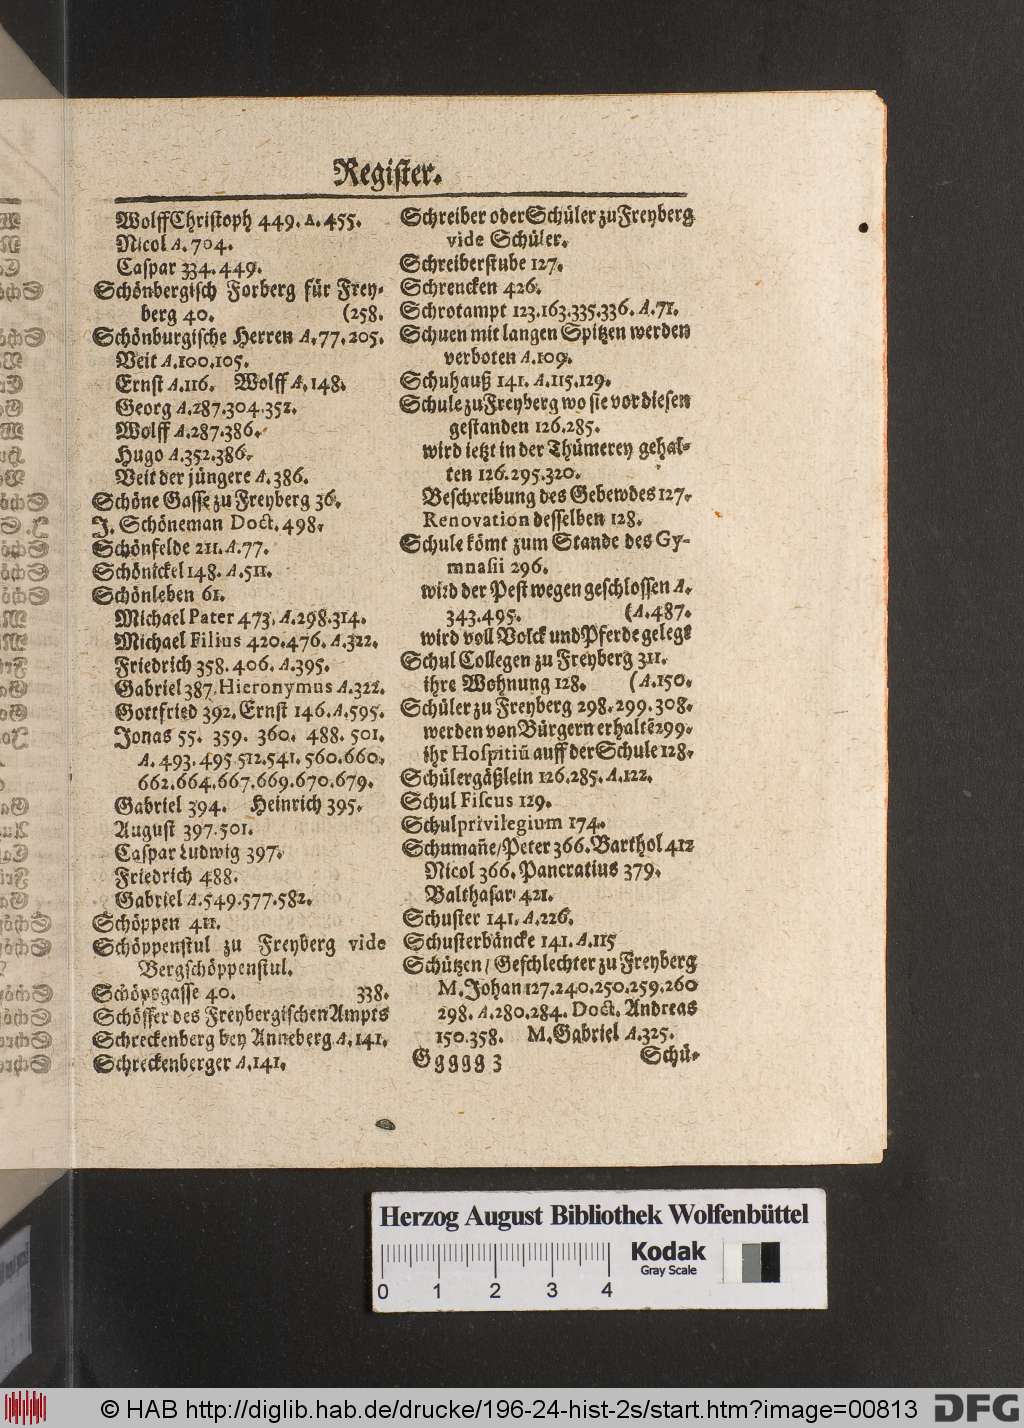 Register.
Wolff Christoph 449. A. 455.
Nicol A. 704.
Caspar 334. 449.
Schönbergisch Forberg für Frey-
berg 40. (258.
Schönburgische Herren A. 77. 205.
Veit A. 100. 105.
Ernst A. 116. Wolff A. 148.
Georg A. 287. 304. 352.
Wolff A. 287. 386.
Hugo A. 352. 386.
Veit der jüngere A. 386.
Schöne Gasse zu Freyberg 36.
J. Schöneman Doct. 498.
Schönfelde 211. A. 77.
Schönickel 148. A. 511.
Schönleben 61.
Michael Pater 473. A. 298. 314.
Michael Filius 420. 476. A. 322.
Friedrich 358. 406. A. 395.
Gabriel 387. Hieronymus A. 322.
Gottfried 392. Ernst 146. A. 595.
Jonas 55. 359. 360. 488. 501.
A. 493. 495. 512. 541. 560. 660.
662. 664. 667. 669. 670. 679.
Gabriel 394. Heinrich 395.
August 397. 501.
Caspar Ludwig 397.
Friedrich 488.
Gabriel A. 549. 577. 582.
Schöppen 411.
Schöppenstul zu Freyberg vide
Bergschöppenstul.
Schöpsgasse 40. 338.
Schösser des Freybergischen Ampts
Schreckenberg bey Anneberg A. 141.
Schreckenberger A. 141.
Schreiber oder Schüler zu Freyberg
vide Schüler.
Schreiberstube 127.
Schrencken 426.
Schrotampt 123. 163. 335. 336. A. 71.
Schuen mit langen Spitzen werden
verboten A. 109.
Schuhauß 141. A. 115. 129.
Schule zu Freyberg wo sie vor diesen
gestanden 126. 285.
wird ietzt in der Thümerey gehal-
ten 126. 295. 320.
Beschreibung des Gebewdes 127.
Renovation desselben 128.
Schule kömt zum Stande des Gy-
mnasii 296.
wird der Pest wegen geschlossen A.
343. 495. (A. 487.
wird voll Volck und Pferde gelegt
Schul Collegen zu Freyberg 311.
ihre Wohnung 128. (A. 150.
Schüler zu Freyberg 298. 299. 308.
werden von Bürgern erhaltē 299.
ihr Hospitiū auff der Schule 128.
Schülergäßlein 126. 285. A. 122.
Schul Fiscus 129.
Schulprivilegium 174.
Schumañe/ Peter 366. Barthol 412
Nicol 366. Pancratius 379.
Balthasar 421.
Schuster 141. A. 226.
Schusterbäncke 141. A. 115
Schützen/ Geschlechter zu Freyberg
M. Johan 127. 240. 250. 259. 260
298. A. 280. 284. Doct. Andreas
150. 358. M. Gabriel A. 325.
Ggggg 3 Schü-
Herzog August Bibliothek Wolfenbüttel
Kodak
Gray Scale
0 1 2 3 4
© HAB http://diglib.hab.de/drucke/196-24-hist-2s/start.htm?image=00813
DFG